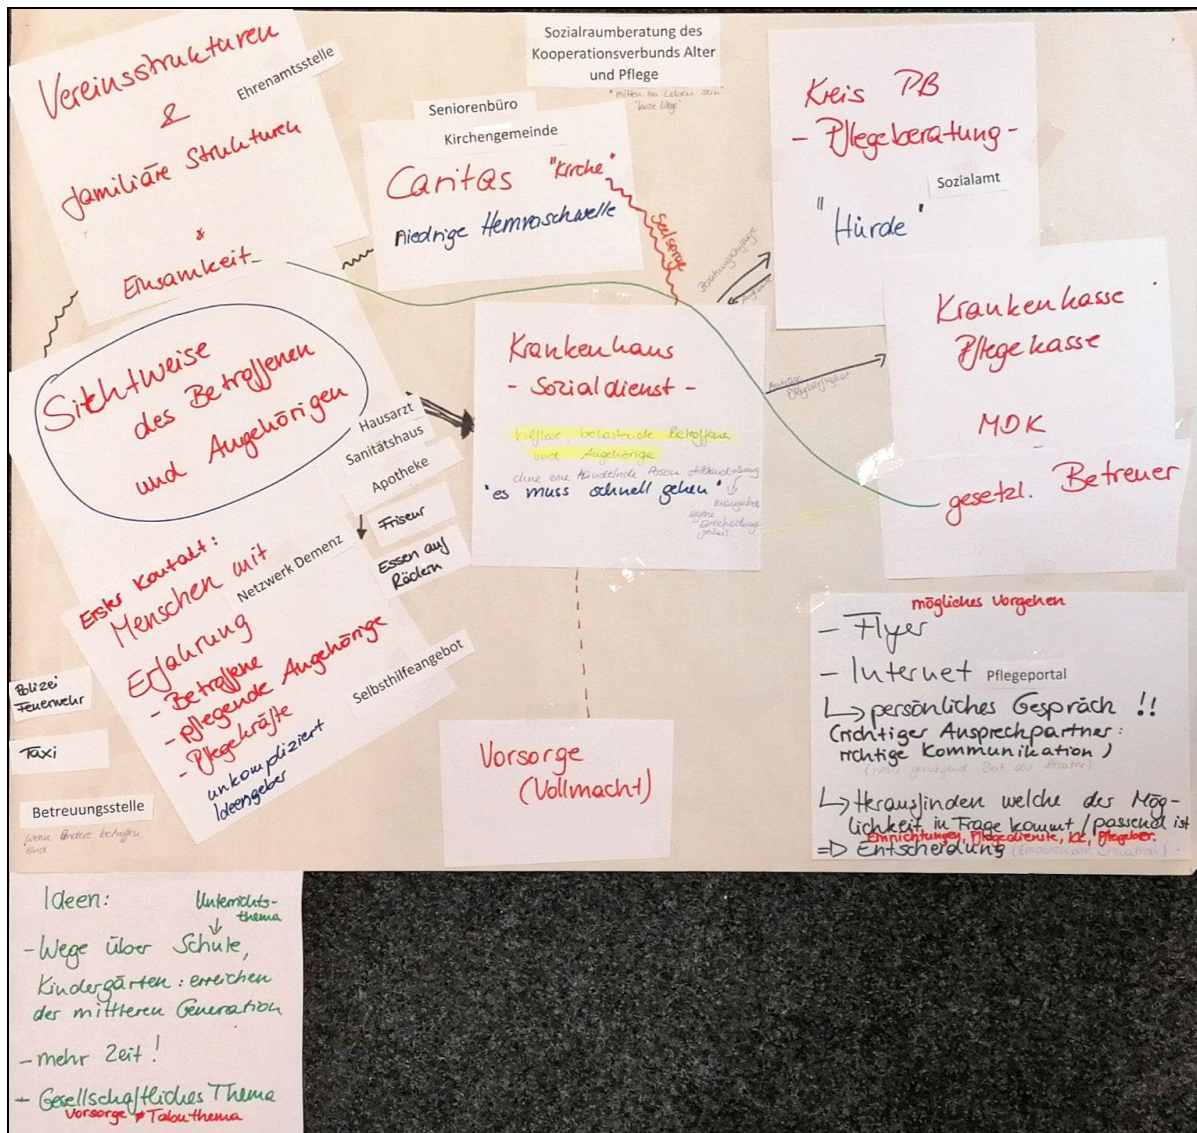 Vereinsstrukturen
&
familiäre Strukturen
&
Einsamkeit
Ehrenamtsstelle
Seniorenbüro
Kirchengemeinde
Caritas "Kirche"
niedrige Hemmschwelle
Seelsorge
Sozialraumberatung des
Kooperationsverbunds Alter
und Pflege
"mitten im Leben sein"
Kreis PB
- Pflegeberatung -
Sozialamt
"Hürde"
Krankenkasse
Pflegekasse
MDK
gesetzl. Betreuer
Sichtweise
des Betroffenen
und Angehörigen
Hausarzt
Sanitätshaus
Apotheke
Friseur
Essen auf
Rädern
Krankenhaus
- Sozialdienst -
hilflose, belastende Betroffene
und Angehörige
ohne eine Handelnde Person
"es muss schnell gehen"
Erster Kontakt:
Menschen mit
Erfahrung
- Betroffene
- pflegende Angehörige
- Pflegekräfte
unkompliziert
Ideengeber
Netzwerk Demenz
Selbsthilfeangebot
Polizei
Feuerwehr
Taxi
Betreuungsstelle
wenn Andere betroffen
sind
Vorsorge
(Vollmacht)
mögliches Vorgehen
- Flyer
- Internet Pflegeportal
↳ persönliches Gespräch !!
(richtiger Ansprechpartner:
richtige Kommunikation)
↳ Herausfinden welche der Mög-
lichkeit in Frage kommt / passend ist
Einrichtungen, Pflegedienste, KK, Pflegeber.
=> Entscheidung
Ideen:
Unterrichts-
thema
- Wege über Schule,
Kindergärten: erreichen
der mittleren Generation
- mehr Zeit!
- Gesellschaftliches Thema
Vorsorge ≠ Tabuthema